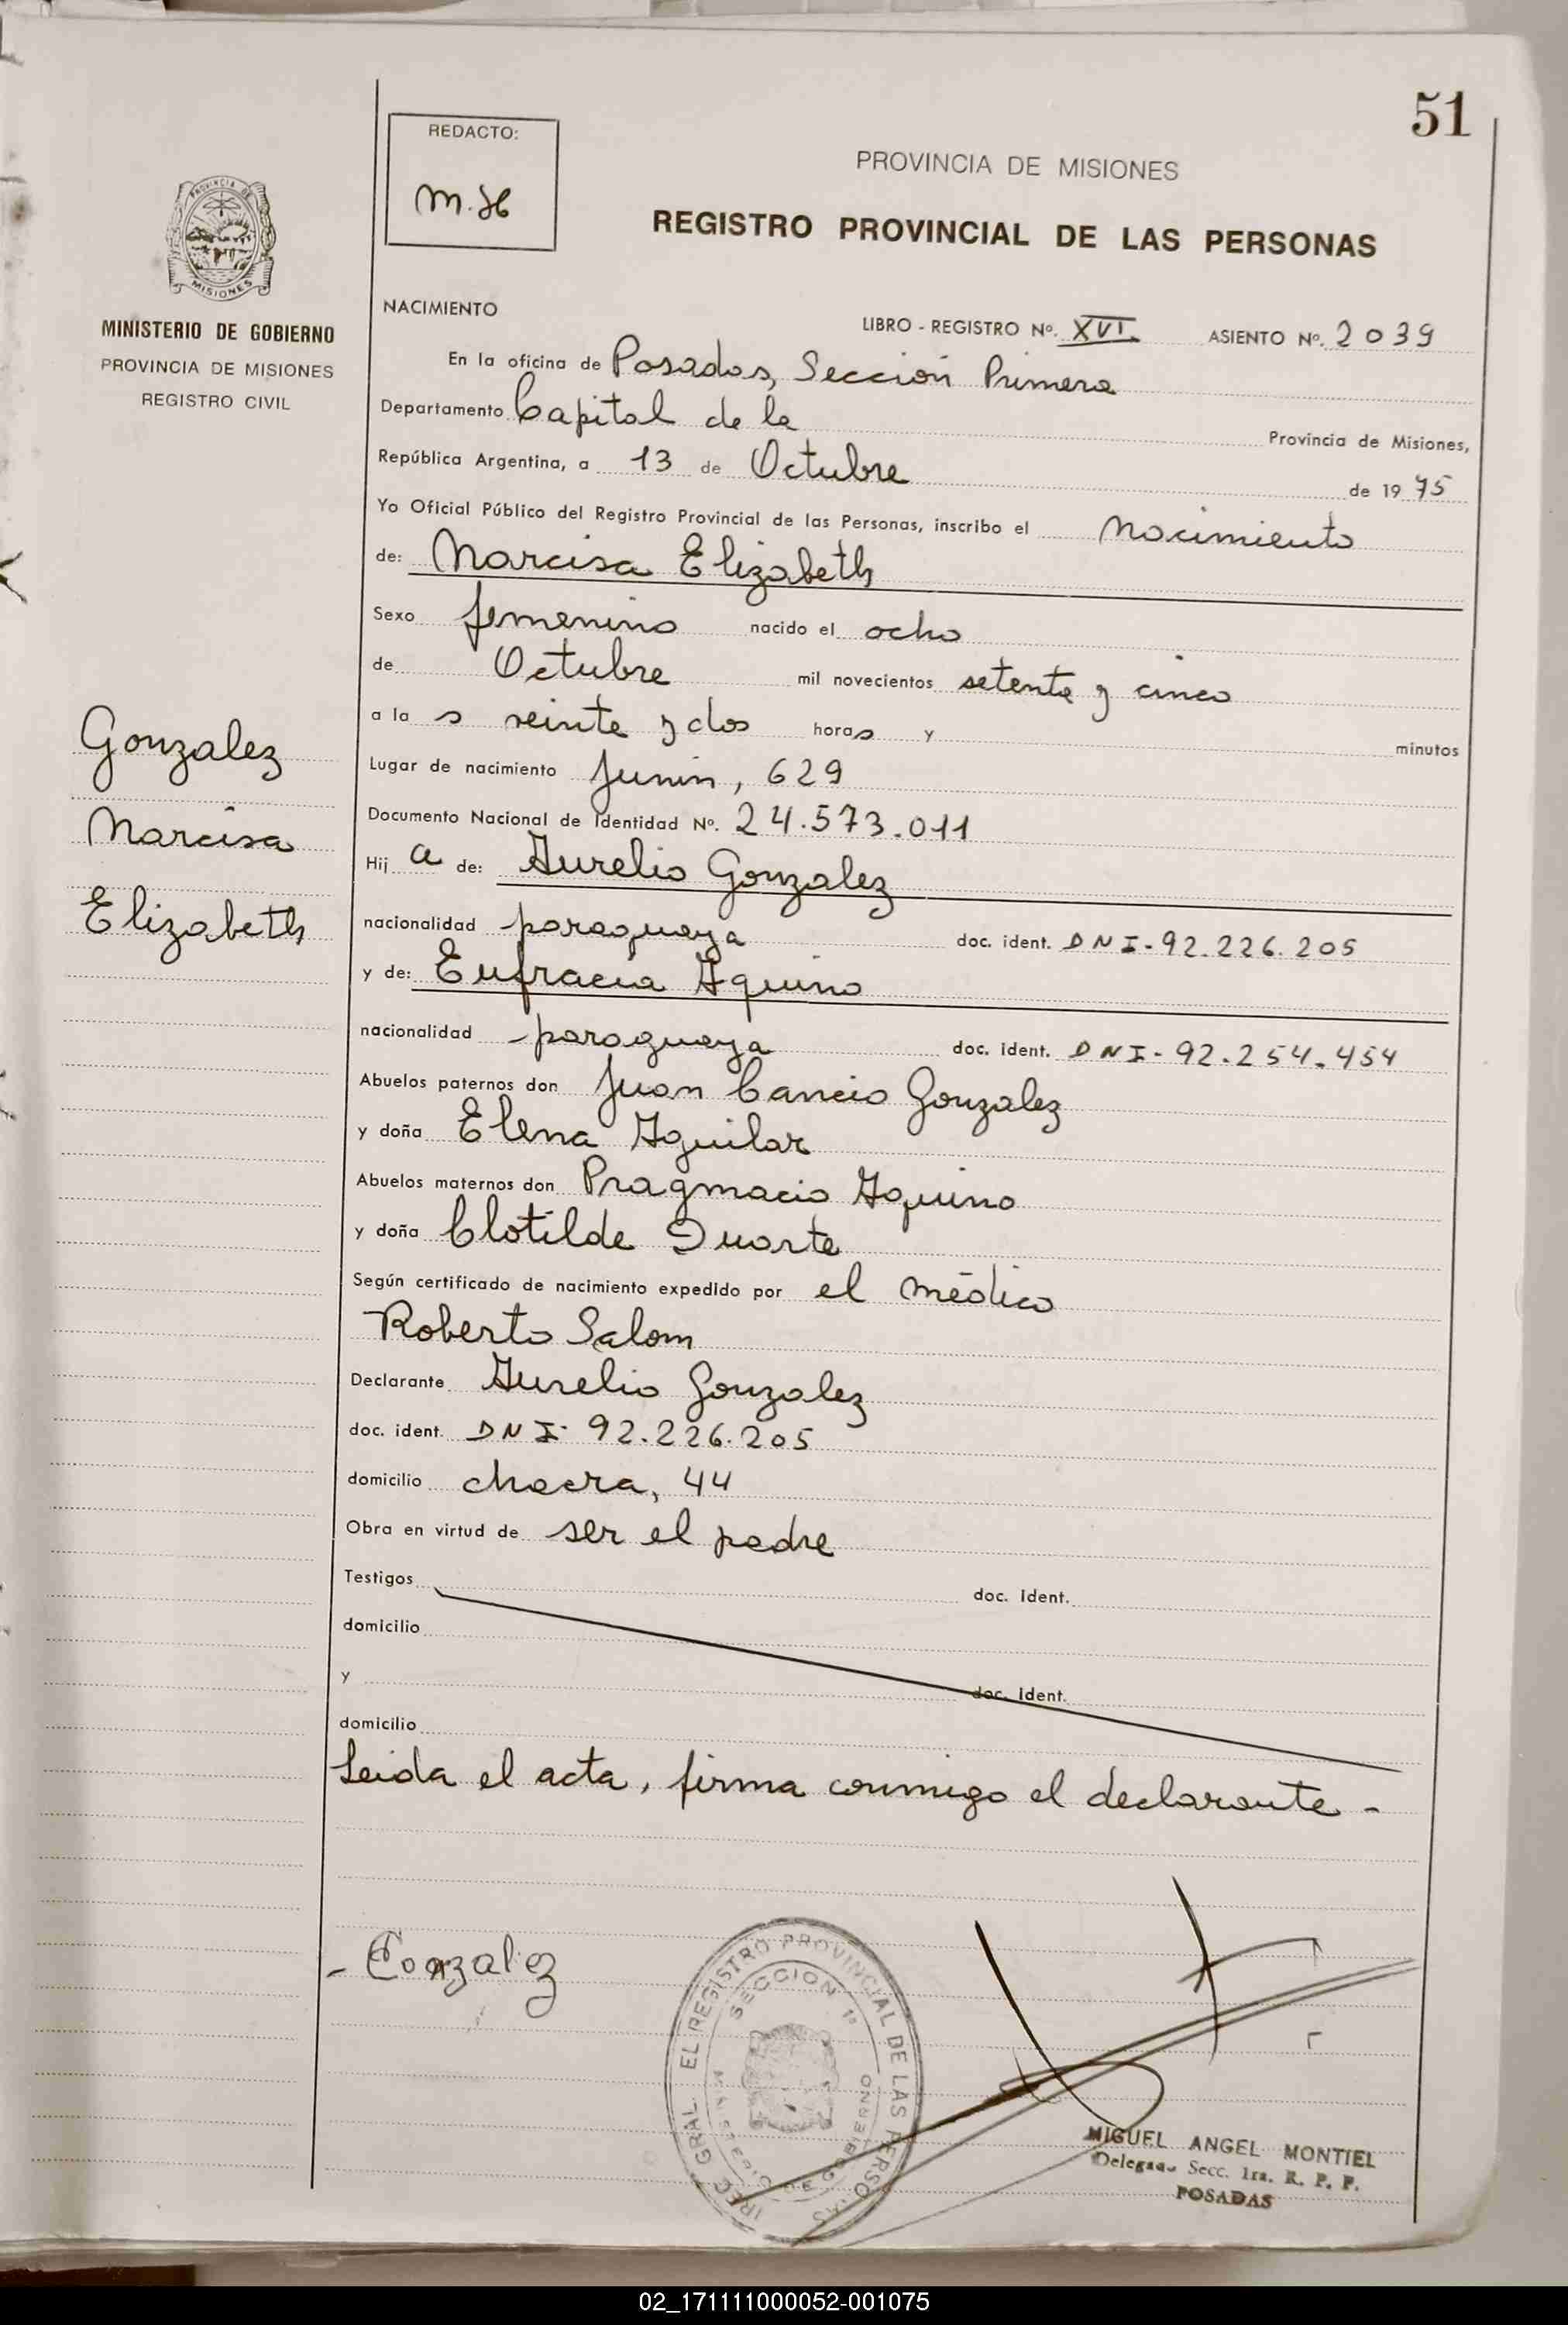 51
REDACTO:
M.H
PROVINCIA DE MISIONES
REGISTRO PROVINCIAL DE LAS PERSONAS
PROVINCIA DE
MISIONES
MINISTERIO DE GOBIERNO
PROVINCIA DE MISIONES
REGISTRO CIVIL
NACIMIENTO
LIBRO - REGISTRO Nº. XVI. ASIENTO Nº. 2039
En la oficina de Posadas, Sección Primera
Departamento Capital de la Provincia de Misiones,
República Argentina, a 13 de Octubre de 19 75
Yo Oficial Público del Registro Provincial de las Personas, inscribo el Nacimiento
de: Narcisa Elizabeth
Sexo femenino nacido el ocho
de Octubre mil novecientos setenta y cinco
a la s veinte y dos horas y minutos
Gonzalez
Narcisa
Elizabeth
Lugar de nacimiento Junin, 629
Documento Nacional de Identidad Nº. 24.573.011
Hij a de: Aurelio Gonzalez
nacionalidad paraguaya doc. ident. DNI-92.226.205
y de: Eufracia Aquino
nacionalidad -paraguaya doc. ident. DNI-92.254.454
Abuelos paternos don Juan Cancio Gonzalez
y doña Elena Aguilar
Abuelos maternos don Pragmacio Aquino
y doña Clotilde Duarte
Según certificado de nacimiento expedido por el médico
Roberto Salom
Declarante Aurelio Gonzalez
doc. ident. DNI- 92.226.205
domicilio chacra, 44
Obra en virtud de ser el padre
Testigos doc. Ident.
domicilio
y doc. Ident.
domicilio
Leida el acta, firma conmigo el declarante -
- Gonzalez
EL REGISTRO PROVINCIAL DE LAS PERSONAS
SECCION 1ª
MINISTERIO DE GOBIERNO
GRAL.
MIGUEL ANGEL MONTIEL
Delegado Secc. 1ra. R. P. P.
POSADAS
02_171111000052-001075